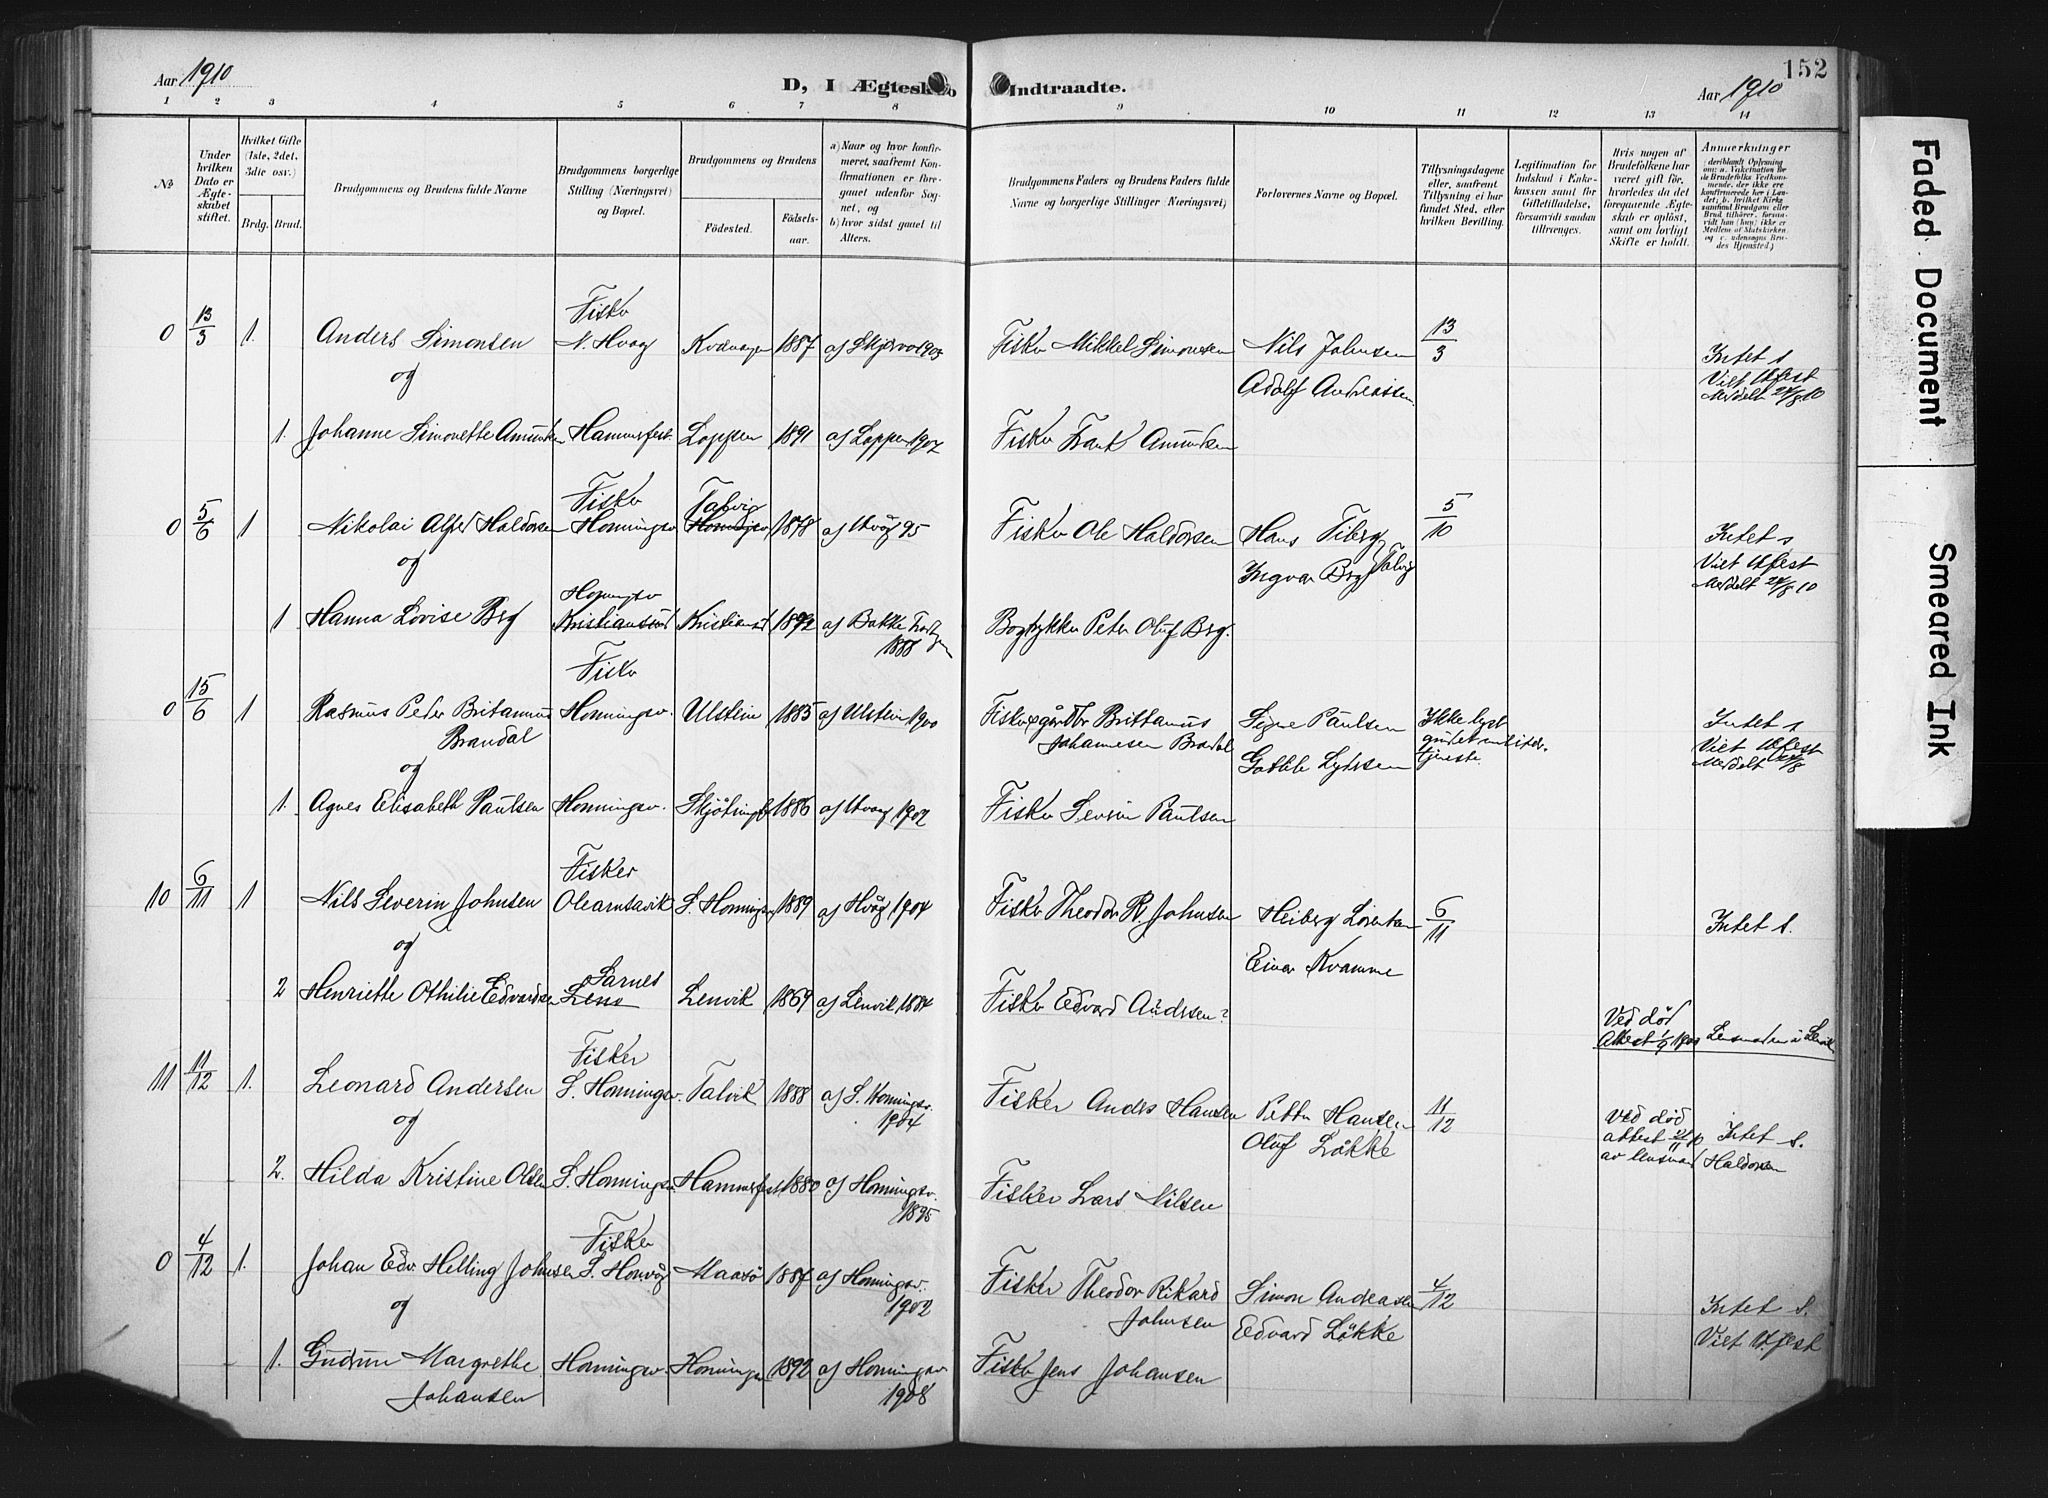 Aar 1910
D, I Ægtesk
Indtraadte.
Aar 1910
152
1 2 3 4 5 6 7 8 9 10 11 12 13 14
№
Under hvilken Dato er Ægteskabet stiftet.
Hvilket Gifte (1ste, 2det, 3die osv.)
Brdg. Brud.
Brudgommens og Brudens fulde Navne
Brudgommens borgerlige Stilling (Næringsvei) og Bopæl.
Brudgommens og Brudens
Födested.
Födselsaar.
a) Naar og hvor konfirmeret, saafremt Konfirmationen er foregaaet udenfor Sognet, og
b) hvor sidst gaaet til Alters.
Brudgommens Faders og Brudens Faders fulde Navne og borgerlige Stillinger (Næringsvei)
Forlovernes Navne og Bopæl.
Tillysningsdagene eller, saafremt Tillysning ei har fundet Sted, efter hvilken Bevilling.
Legitimation for Indskud i Enkekassen samt for Giftetilladelse, forsaavidt saadan tiltrænges.
Hvis nogen af Brudefolkene har været gift för, hvorledes da det foregaaende Ægteskab er oplöst, samt om lovligt Skifte er holdt.
Anmærkninger
0 13/3 1. Anders Simonsen Fisker N. Hvaag 1887 af Skjervø Fisker Mikkel Simonsen Nils Johnsen 13/3 Intet s
og Adolf Andreassen Viet Hfest
Meddelt 24/8 10
1. Johanne Simonette Amundsen Hammerfest Loppen 1891 af Loppen 1907 Fisker Frant Amundsen
0 5/6 1 Nikolai Alfred Haldorsen Fisker Honningsv Talvig Honningsv 1878 af Hvåg 95 Fisker Ole Haldorsen Hans Tiberg 5/10 Intet s
og Ingvar Brg Talvig Viet Hfest
Meddelt 24/8 10
1 Hanna Lovise Brg Honningsv Kristiansund Kristiansd 1892 af Bakke 1888 Peter Oluf Brg.
0 15/6 1 Rasmus Peter Britannus Brandal Fisker Honningsv. Ulstein 1885 af Ulstein 1900 Fisker gårdbr Brittanus Johannesen Brandal Signe Paulsen Ikke lyst
og Lydersen tjeneste. Intet s
Viet Hfest
Meddelt 24/8
1. Agnes Elisabeth Paulsen Honningsv. Skjötningb 1886 af Hvaag 1902 Fisker Sevrin Paulsen
10 6/11 1 Nils Severin Johnsen Fisker Olearnsavik S. Honningsv 1889 af Hvåg 1904 Fisker Theodor R Johnsen Heiberg Lorentsen 6/11 Intet S.
og Einar Kvamme
2 Henriette Othilie Edvardsen Sarnes Lenvik 1869 af Lenvik 1884 Fisker Edvard Andersen? Ved död Attest 1/9 Lensmanden i Lenvik
11 11/12 1. Leonard Andersen Fisker S. Honningsv. Talvik 1888 af S. Honningsv. 1904 Fisker Anders Hansen Petter Hansen 11/12 Ved död attest av lensmand Haldorsen Intet S.
og Oluf Lökke
2. Hilda Kristine Olsen S. Honningsv. Hammerfest 1880 af Honningsv. 1895 Fisker Lars Nilsen
0 4/12 1. Johan Edv Helling Johnsen Fisker S. Honvåg Maasö 1887 af Honningsv. 1902 Fisker Theodor Rikard Johnsen Simon Andreasen 4/12 Intet S.
og Edvard Lökke Viet Hfest
1. Gudrun Margrethe Johansen Honningsv. Honningsv 1892 af Honningsv 1908 Fisker Jens Johansen
Faded Document
Smeared Ink